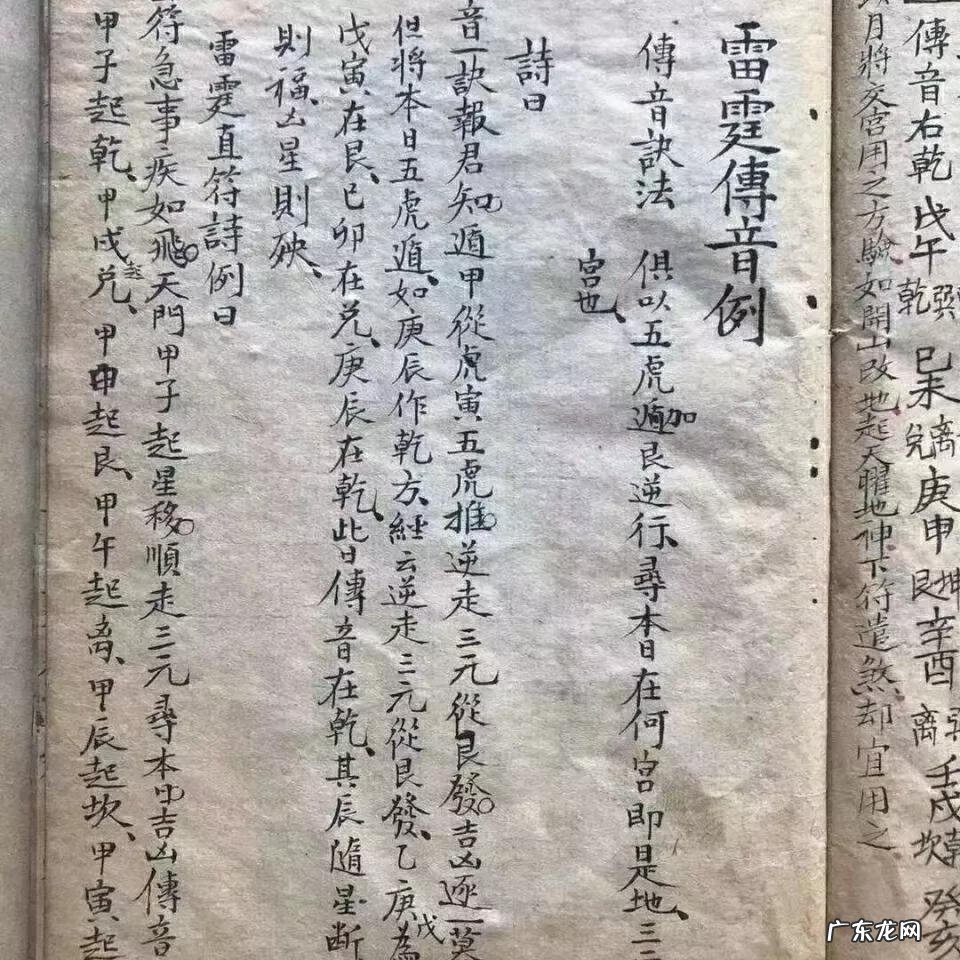 傳音右乾戊午乾巽己未兌離庚申艮坤辛酉離巽壬戌坎乾癸亥
月將交宮用之方驗如開山改地起天曜地神下符遣煞却宜用之
雷霆傳音例
傳音訣法 俱以五虎遁加艮逆行尋本日在何宮即是地三三
宮也
詩曰
音一訣報君知遁甲從虎寅五虎推逆走三元從艮發吉凶逐一莫
但將本日五虎遁如庚辰作乾方經云逆走三元從艮發乙庚為戊
戊寅在艮己卯在兌庚辰在乾此日傳音在乾其辰隨星斷
則福凶星則殃
雷霆直符詩例曰
符急事疾如飛天門甲子起星移順走三元尋本由吉凶傳音
甲子起乾甲戌起兌甲申起艮甲午起离甲辰起坎甲寅起
广东龙网